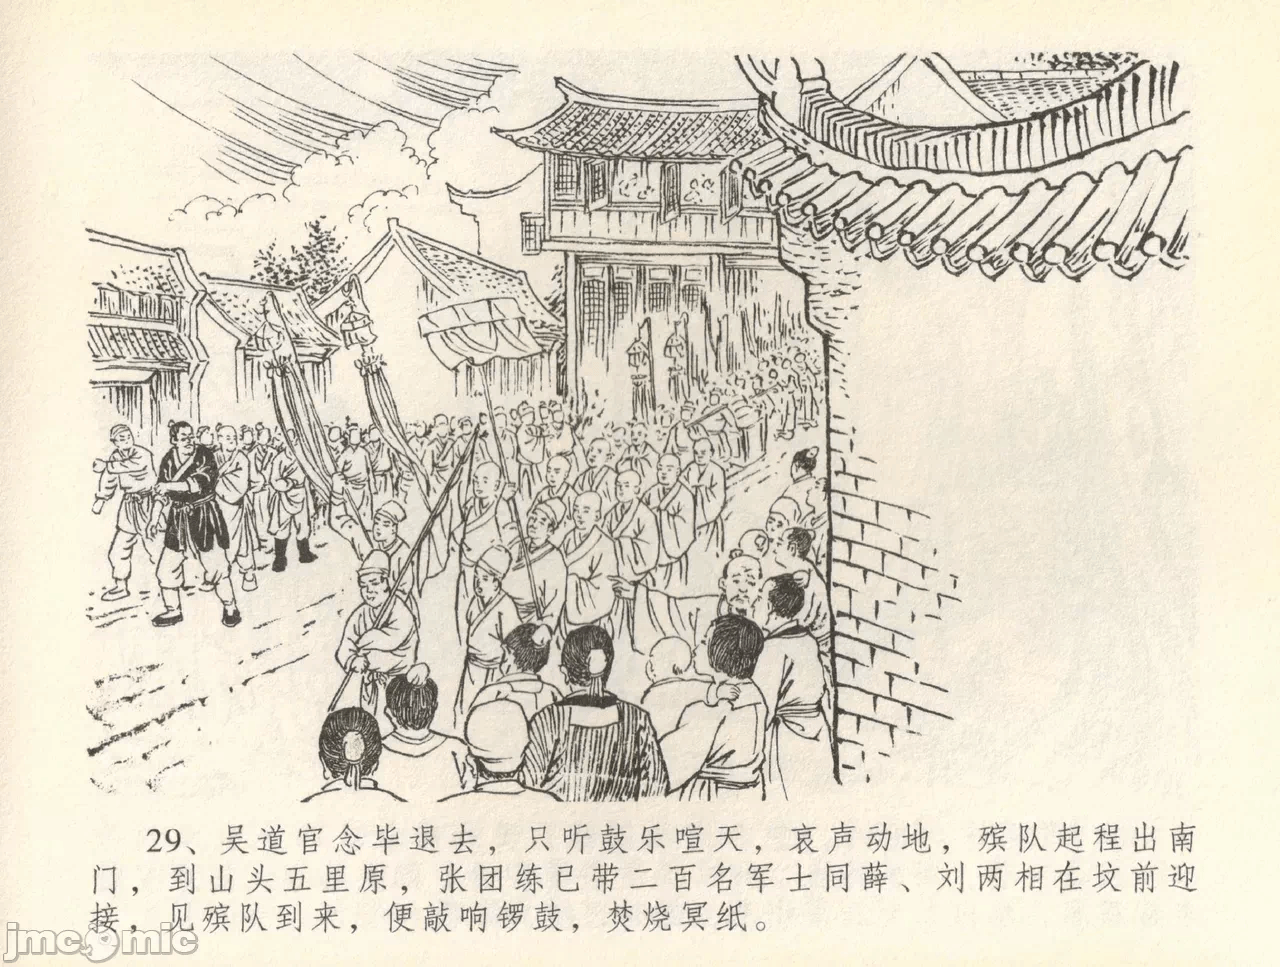 29、吴道官念毕退去，只听鼓乐喧天，哀声动地，殡队起程出南
门，到山头五里原，张团练已带二百名军士同薛、刘两相在坟前迎
接，见殡队到来，便敲响锣鼓，焚烧冥纸。
jmc mic